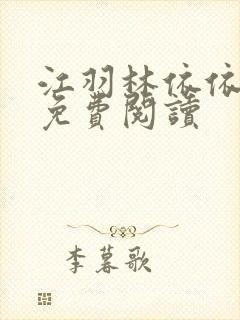 江羽林依依
免費閱讀
李暮歌